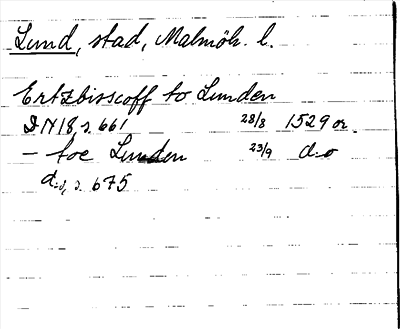 Lund, stad, Malmöh. l.
Ertzbisscoff to Lunden
DN 18, s. 661 28/8 1529 or.
– toe Lunden 23/9 d:o
d:o, s. 675